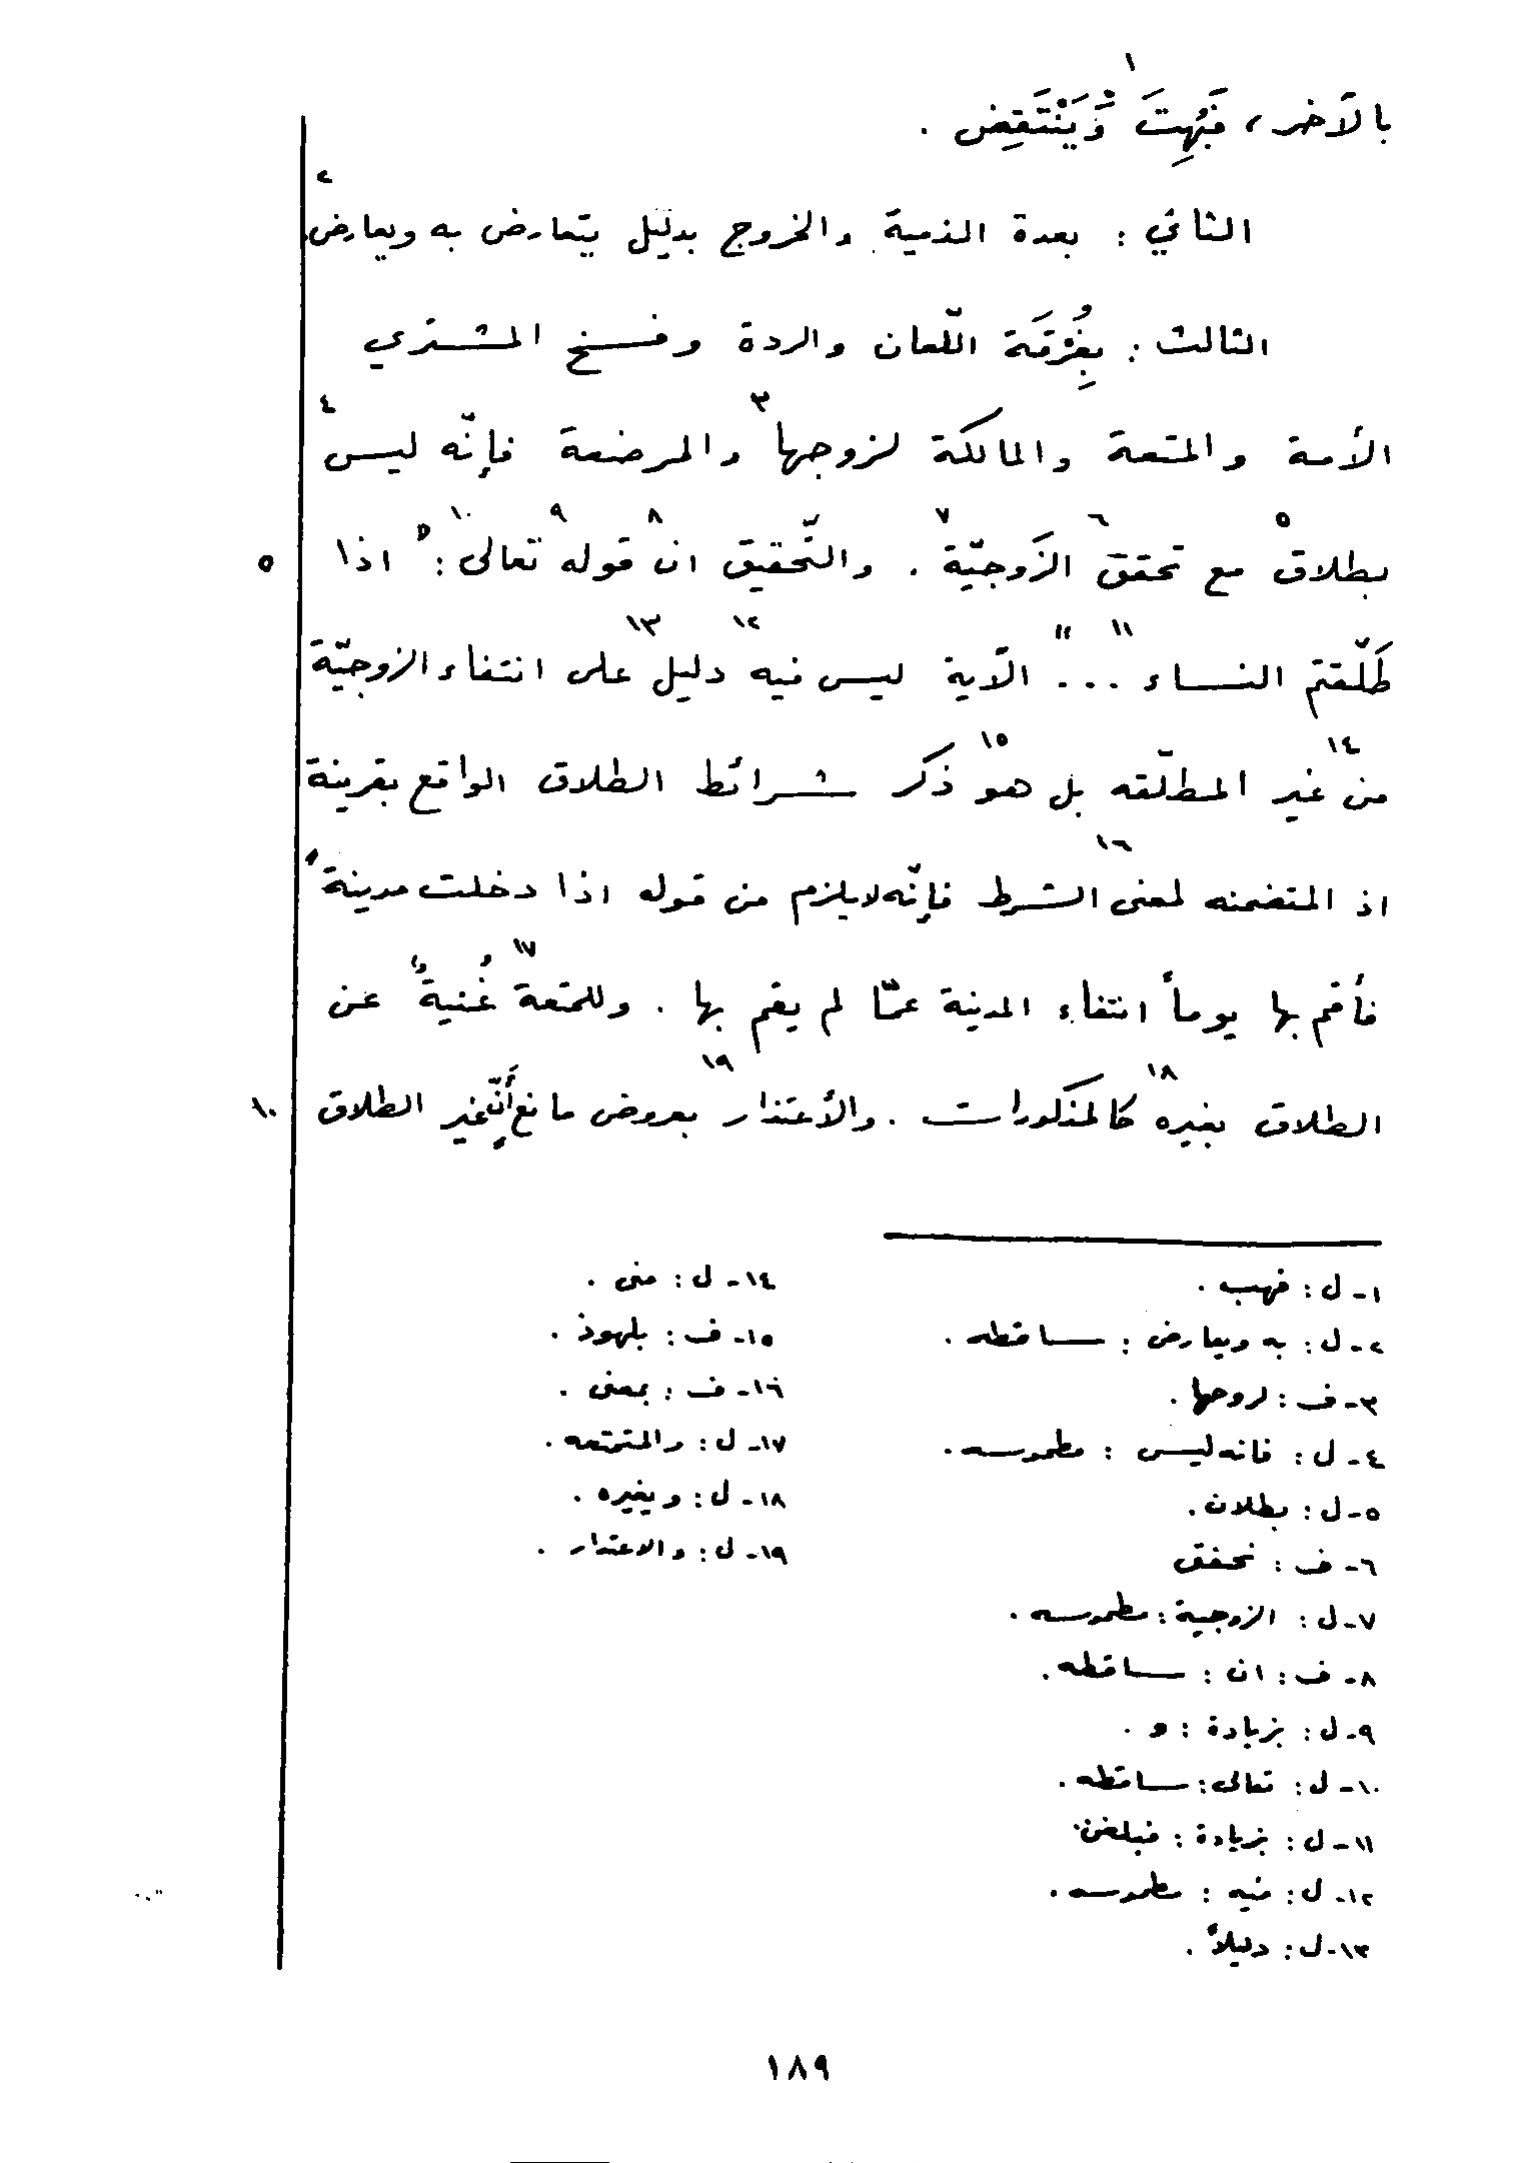 بالآخر، فَبُهِتَ ١ وَيَنْتَقِض .
الثاني : بعدة الذمية والخروج بدليل يتعارض به ويعارض ٢
الثالث : بفُرْقَة اللّعان والردة وفسخ المشتري
الأمة والمتعة والمالكة لزوجها ٣ والمرضعة فإنّه ليس ٤
بطلاق ٥ مع تحقق ٦ الزَوجيّة ٧ . والتّحقيق ان ٨ قوله ٩ تعالى ١٠ : " اذا ٥
طَلّقتم النساء ١١ ... " الآية ليس فيه ١٢ دليل ١٣ على انتفاء الزوجيّة
من ١٤ غير المطلّقه بل هو ١٥ ذكر شرائط الطلاق الواقع بقرينة
اذ المتضمنه لمعنى ١٦ الشرط فإنّه لا يلزم من قوله اذا دخلت مدينة"
فأقم بها يوماً انتفاء المدينة عمّا لم يقم بها . وللمتعة ١٧ غُنية عن
الطلاق بغيره ١٨ كالمذكورات . والأعتذار ١٩ بعروض مانع أنّ غير الطلاق ١٠
١- ل : فهب .
٢- ل : به ويعارض : ساقطه .
٣- ف : لروحها .
٤- ل : فانه ليس : مطموسه .
٥- ل : بطلان .
٦- ف : نحفق
٧- ل : الزوجية : مطموسه .
٨- ف : ان : ساقطه .
٩- ل : بزيادة : و .
١٠- ل : تعالى : ساقطه .
١١- ل : بزيادة : فبلغن .
١٢- ل : فيه : مطموسه .
١٣- ل : دليلاً .
١٤- ل : منى .
١٥- ف : بلهوذ .
١٦- ف : بمعنى .
١٧- ل : والمتمتعه .
١٨- ل : و يغيره .
١٩- ل : والاعتدار .
١٨٩